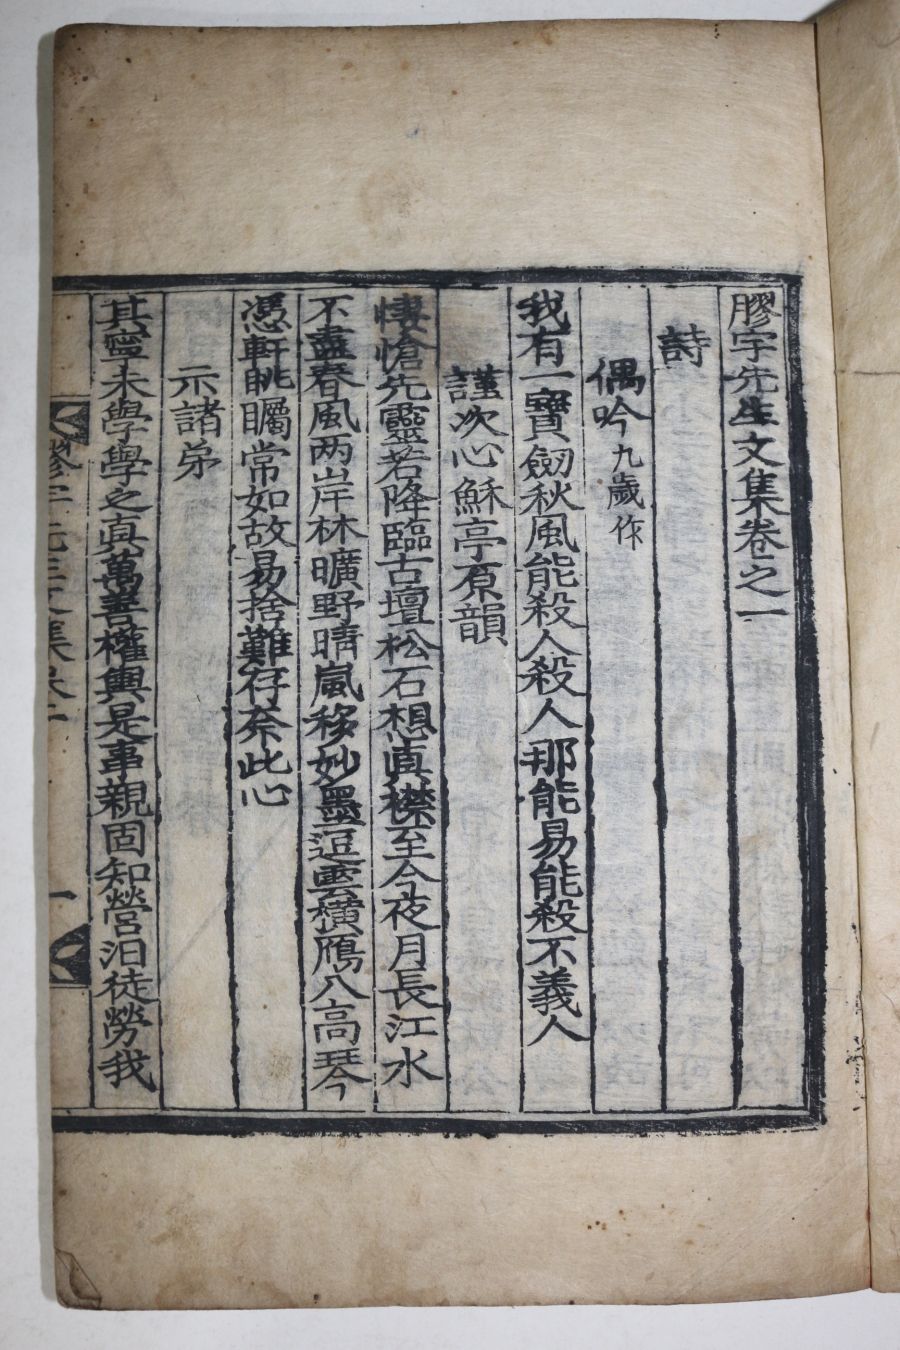 膠宇先生文集卷之一
詩
偶吟 九歲作
我有一寶劒秋風能殺人殺人那能易能殺不義人
謹次心穌亭原韻
悽愴先靈若降臨古壇松石想眞襟至今夜月長江水
不盡春風两岸林曠野晴嵐移妙墨逗雲橫鴈八高琴
憑軒眺矚常如故易捨難存奈此心
示諸弟
其寧未學學之眞萬善權輿是事親固知營汨徒勞我
膠宇先生文集卷之一
一